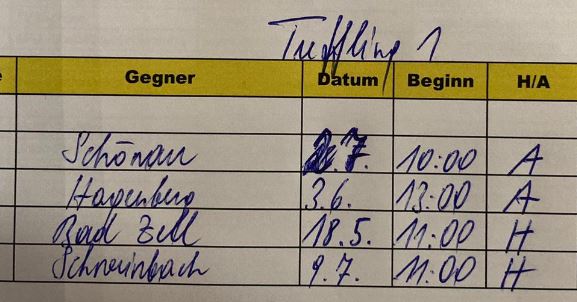 Treffling 1
Gegner Datum Beginn H/A
Schönau 7. 10:00 A
Hagenberg 3.6. 13:00 A
Bad Zell 18.5. 11:00 H
9.7. 11:00 H